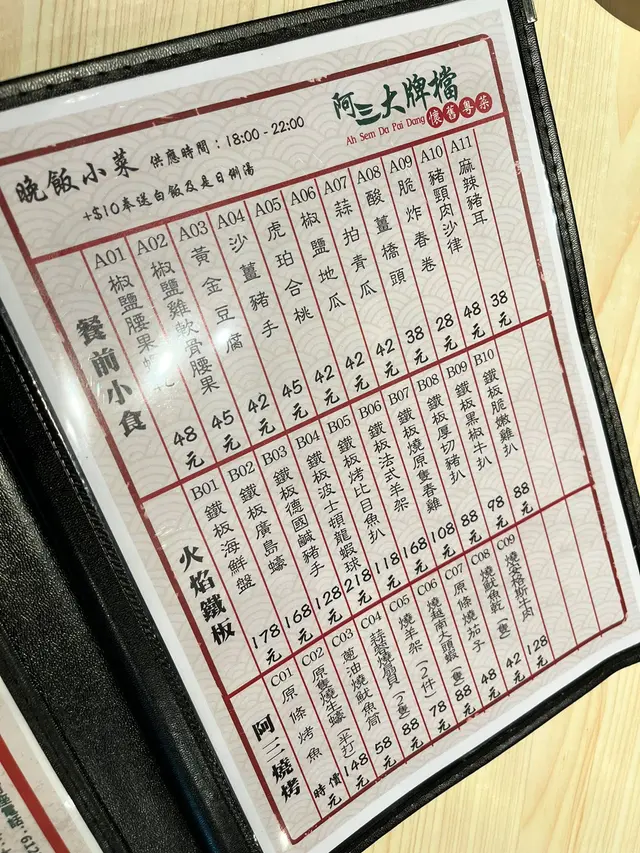 阿三大牌檔
Ah Sem Da Pai Dang 懷舊粵菜
晚飯小菜 供應時間：18:00 - 22:00
+$10奉送白飯及是日例湯
餐前小食
A01 椒鹽腰果 48元
A02 椒鹽雞軟骨腰果 45元
A03 黃金豆腐 42元
A04 沙薑豬手 45元
A05 虎珀合桃 42元
A06 椒鹽地瓜 42元
A07 蒜拍青瓜 42元
A08 酸薑橋頭 38元
A09 脆炸春卷 28元
A10 豬頸肉沙律 48元
A11 麻辣豬耳 38元
火焰鐵板
B01 鐵板海鮮盤 178元
B02 鐵板廣島蠔 168元
B03 鐵板德國鹹豬手 128元
B04 鐵板波士頓龍蝦球 218元
B05 鐵板烤比目魚扒 118元
B06 鐵板法式羊架 168元
B07 鐵板燒原隻春雞 108元
B08 鐵板厚切豬扒 88元
B09 鐵板黑椒牛扒 98元
B10 鐵板脆嫩雞扒 88元
阿三燒烤
C01 原條烤魚 時價元
C02 原隻燒生蠔(半打) 148元
C03 蔥油燒魷魚筒 58元
C04 蒜蓉燒扇貝(2隻) 88元
C05 燒羊架(2件) 78元
C06 燒越南大頭蝦(隻) 88元
C07 原條燒茄子 48元
C08 燒魷魚乾(隻) 42元
C09 燒安格斯牛肉 128元